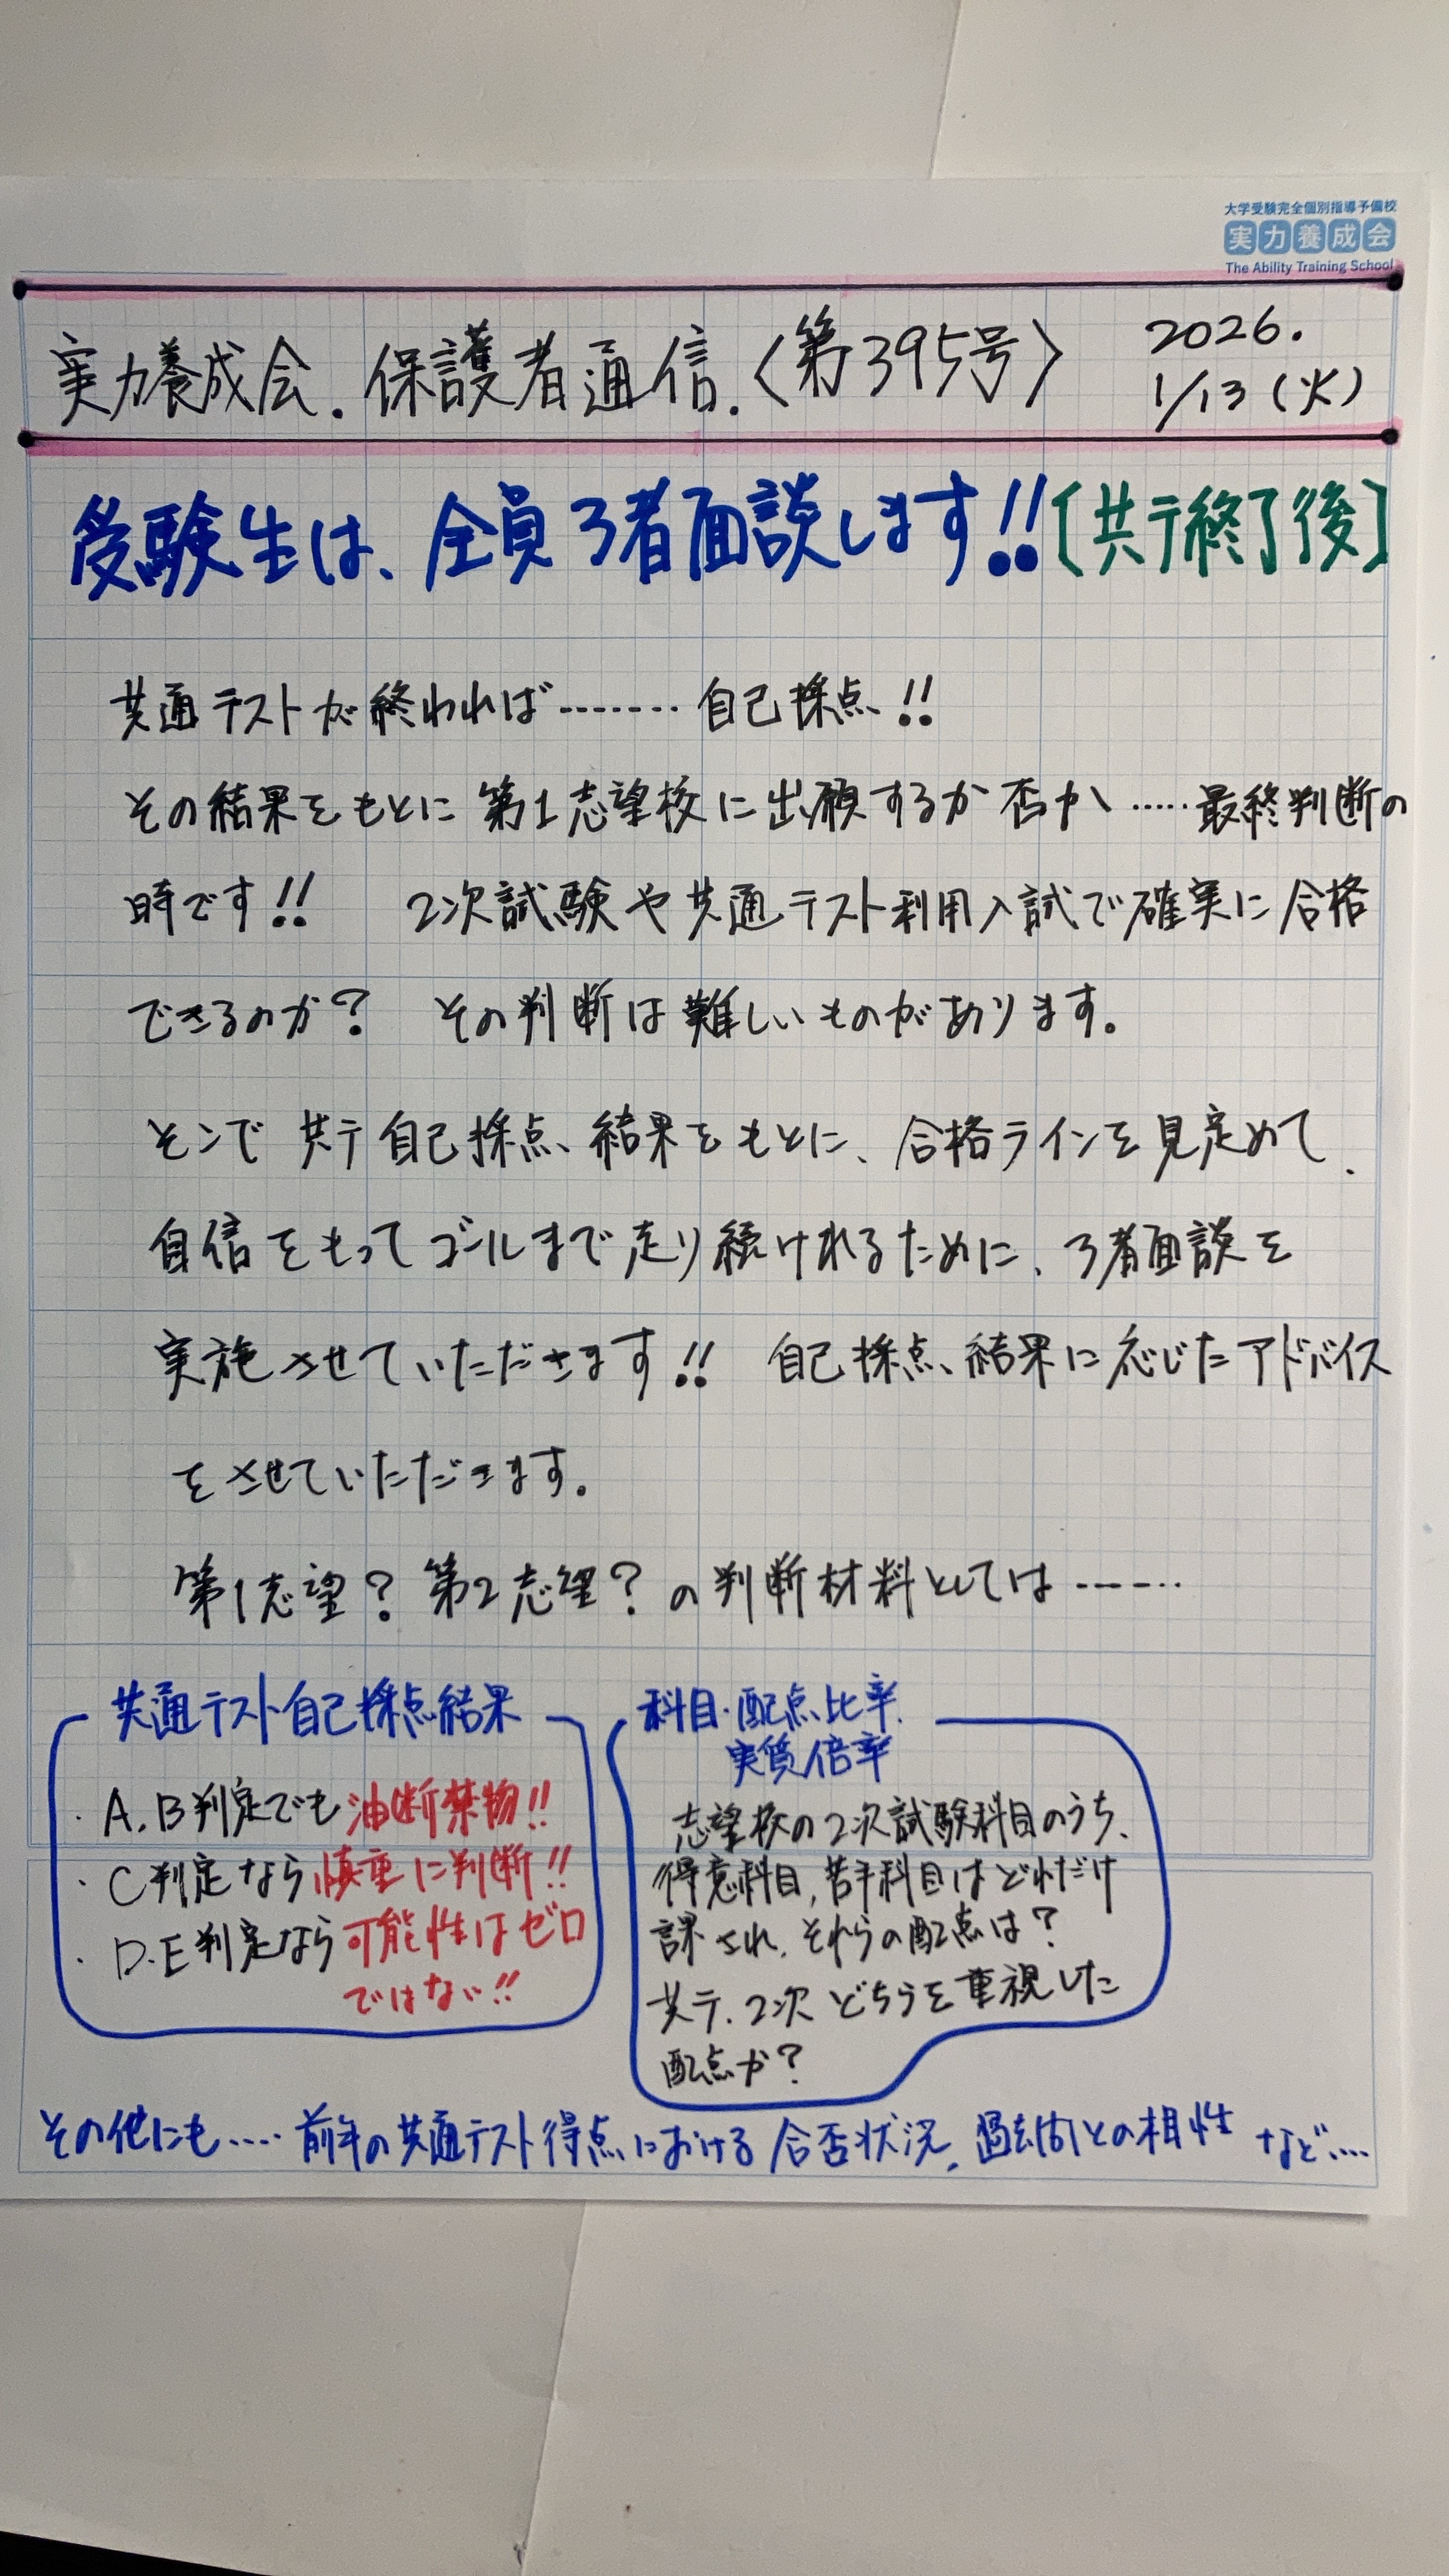 大学受験完全個別指導予備校
実力養成会
The Ability Training School
実力養成会.保護者通信.〈第395号〉
2026.
1/13(火)
受験生は、全員3者面談します!!〔共テ終了後〕
共通テストが終われば……. 自己採点!!
その結果をもとに第1志望校に出願するか否か…..最終判断の
時です!! 2次試験や共通テスト利用入試で確実に合格
できるのか? その判断は難しいものがあります。
そこで共テ自己採点結果をもとに、合格ラインを見定めて、
自信をもってゴールまで走り続けれるために、3者面談を
実施させていただきます!! 自己採点結果に応じたアドバイス
をさせていただきます。
第1志望?第2志望?の判断材料としては……
共通テスト自己採点結果
・A.B判定でも油断禁物!!
・C判定なら慎重に判断!!
・D.E判定なら可能性はゼロ
ではない!!
科目・配点比率.
実質倍率
志望校の2次試験科目のうち、
得意科目,苦手科目はどれだけ
課され、それらの配点は?
共テ.2次どちらを重視した
配点か?
その他にも….前年の共通テスト得点における合否状況、過去問との相性など….